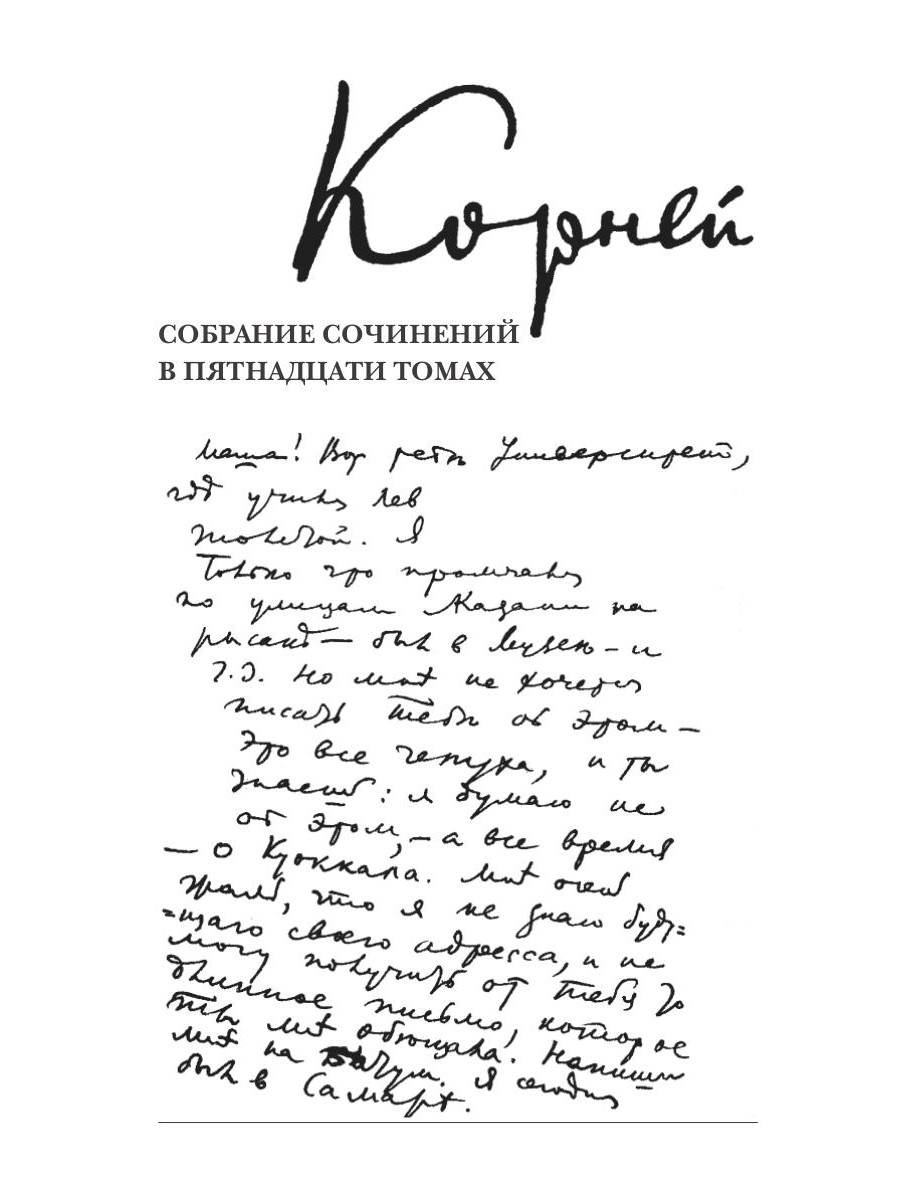 Корней
СОБРАНИЕ СОЧИНЕНИЙ
В ПЯТНАДЦАТИ ТОМАХ
Маша! Вот тетѣ Университет,
гдѣ учился Лев
Толстой. Я
Только что промчался
по улицам Казани на
рысакѣ — был в Музеѣ — и
т.д. Но мнѣ не хочется
писать тебѣ об этом —
это все чепуха, и ты
знаешь: я думаю не
об этом, — а все время
— о Куоккала. Мнѣ очень
жаль, что я не знаю буду=
=щаго своего адресса, и не
могу получить от тебя то
длинное письмо, которое
ты мнѣ обѣщала. Напиши
мнѣ на Батум. Я сегодня
был в Самарѣ.